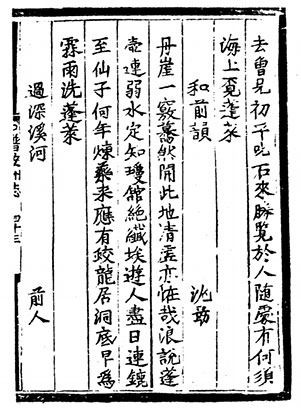 去曾兄初平叱石來勝覽於人隨處有何須
海上覓蓬萊
和前韻
沈勗
丹崖一竅驀然開此地清虛亦怪哉浪說蓬
壺連弱水定知瓊館絕纖埃遊人盡日連鏡
至仙子何年煉藥來應有蛟龍居洞底早為
霖雨洗蓬萊
過深溪河
前人
州志
四十三